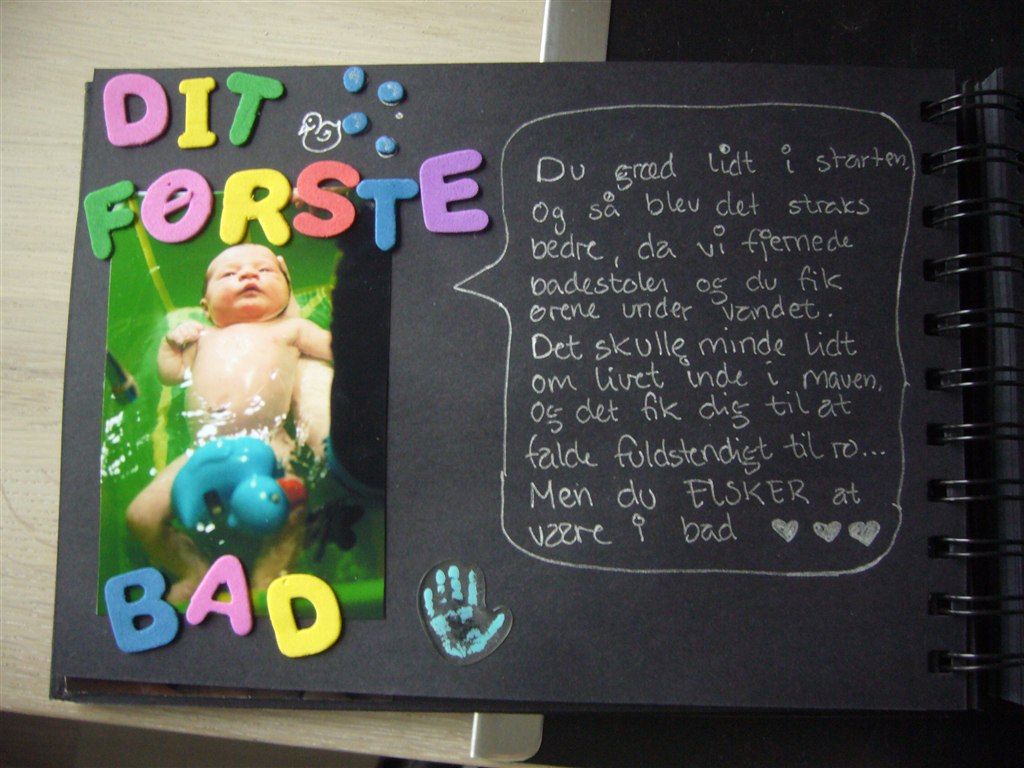 DIT
FØRSTE
BAD
Du græd lidt i starten,
og så blev det straks
bedre, da vi fjernede
badestolen og du fik
ørene under vandet.
Det skulle minde lidt
om livet inde i maven,
og det fik dig til at
falde fuldstendigt til ro...
Men du ELSKER at
være i bad